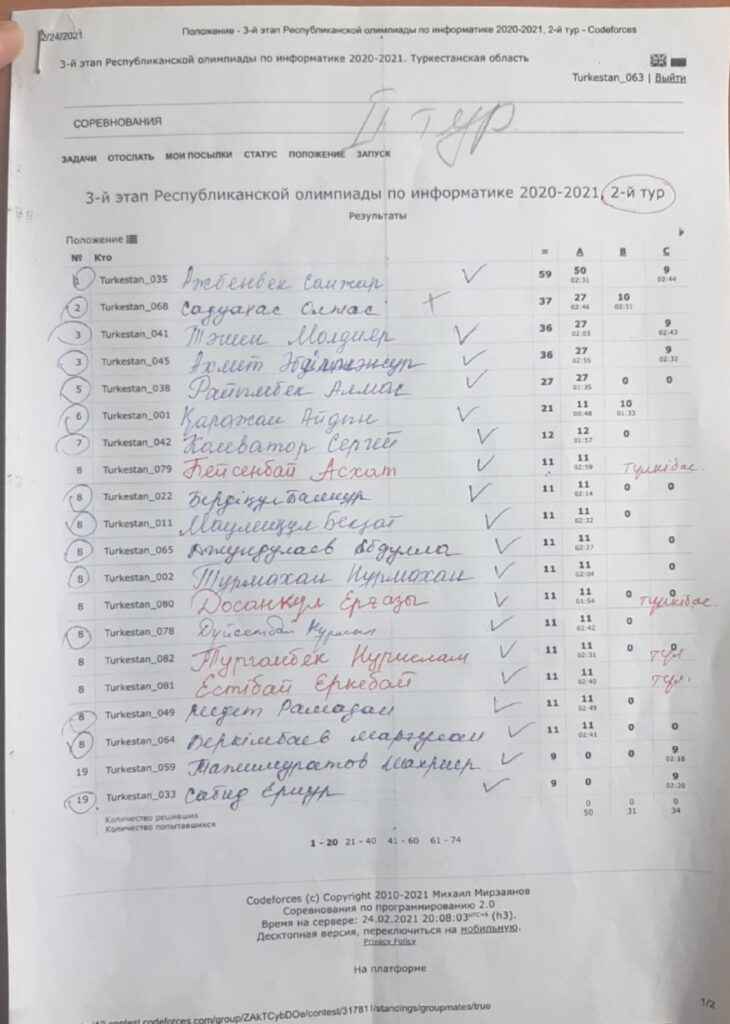 2/24/2021 Положение - 3-й этап Республиканской олимпиады по информатике 2020-2021, 2-й тур - Codeforces
3-й этап Республиканской олимпиады по информатике 2020-2021. Туркестанская область
Turkestan_063 | Выйти
II тур
СОРЕВНОВАНИЯ
ЗАДАЧИ ОТОСЛАТЬ МОИ ПОСЫЛКИ СТАТУС ПОЛОЖЕНИЕ ЗАПУСК
3-й этап Республиканской олимпиады по информатике 2020-2021, 2-й тур
Результаты
Положение
№ Кто = A B C
1 Turkestan_035 Ажбенбек Санжар 59 50 02:31 9 02:44
2 Turkestan_068 Садуакас Олжас 37 27 02:46 10 02:11
3 Turkestan_041 Молдияр 36 27 02:03 9 02:43
3 Turkestan_045 Ахмит 36 27 02:55 9 02:32
5 Turkestan_038 Райымбек Алмас 27 27 01:35 0 0
6 Turkestan_001 Қаражан Айдын 21 11 00:48 10 01:33
7 Turkestan_042 Калеватор Сергей 12 12 01:57 0
8 Turkestan_079 Бейсенбай Асхат 11 11 02:59 түлкібас.
8 Turkestan_022 Бердіқұл 11 11 02:14 0 0
8 Turkestan_011 Мауленқұл Бекзат 11 11 02:32 0
8 Turkestan_065 Абдулла 11 11 02:27 0
8 Turkestan_002 Турмахан Нурмахан 11 11 02:04 0
8 Turkestan_080 Досанкул Ерғазы 11 11 01:54 0 0 түлкібас.
8 Turkestan_078 11 11 02:42 0
8 Turkestan_082 Турғанбек Нурислам 11 11 02:31 0 0 түл.
8 Turkestan_081 Естібай Еркебай 11 11 02:40 түл.
8 Turkestan_049 Рамадан 11 11 02:49 0
8 Turkestan_064 Беркімбаев 11 11 02:41 0 0
19 Turkestan_059 Тажимуратов 9 0 0 9 02:18
19 Turkestan_033 Сабид Ернур 9 0 9 02:20
Количество решивших 0 0 0
Количество попытавшихся 50 31 34
1 - 20 21 - 40 41 - 60 61 - 74
Codeforces (c) Copyright 2010-2021 Михаил Мирзаянов
Соревнования по программированию 2.0
Время на сервере: 24.02.2021 20:08:03 UTC+6 (h3).
Десктопная версия, переключиться на мобильную.
Privacy Policy
На платформе
contest.codeforces.com/group/ZAkTCybDOe/contest/317811/standings/groupmates/true 1/2